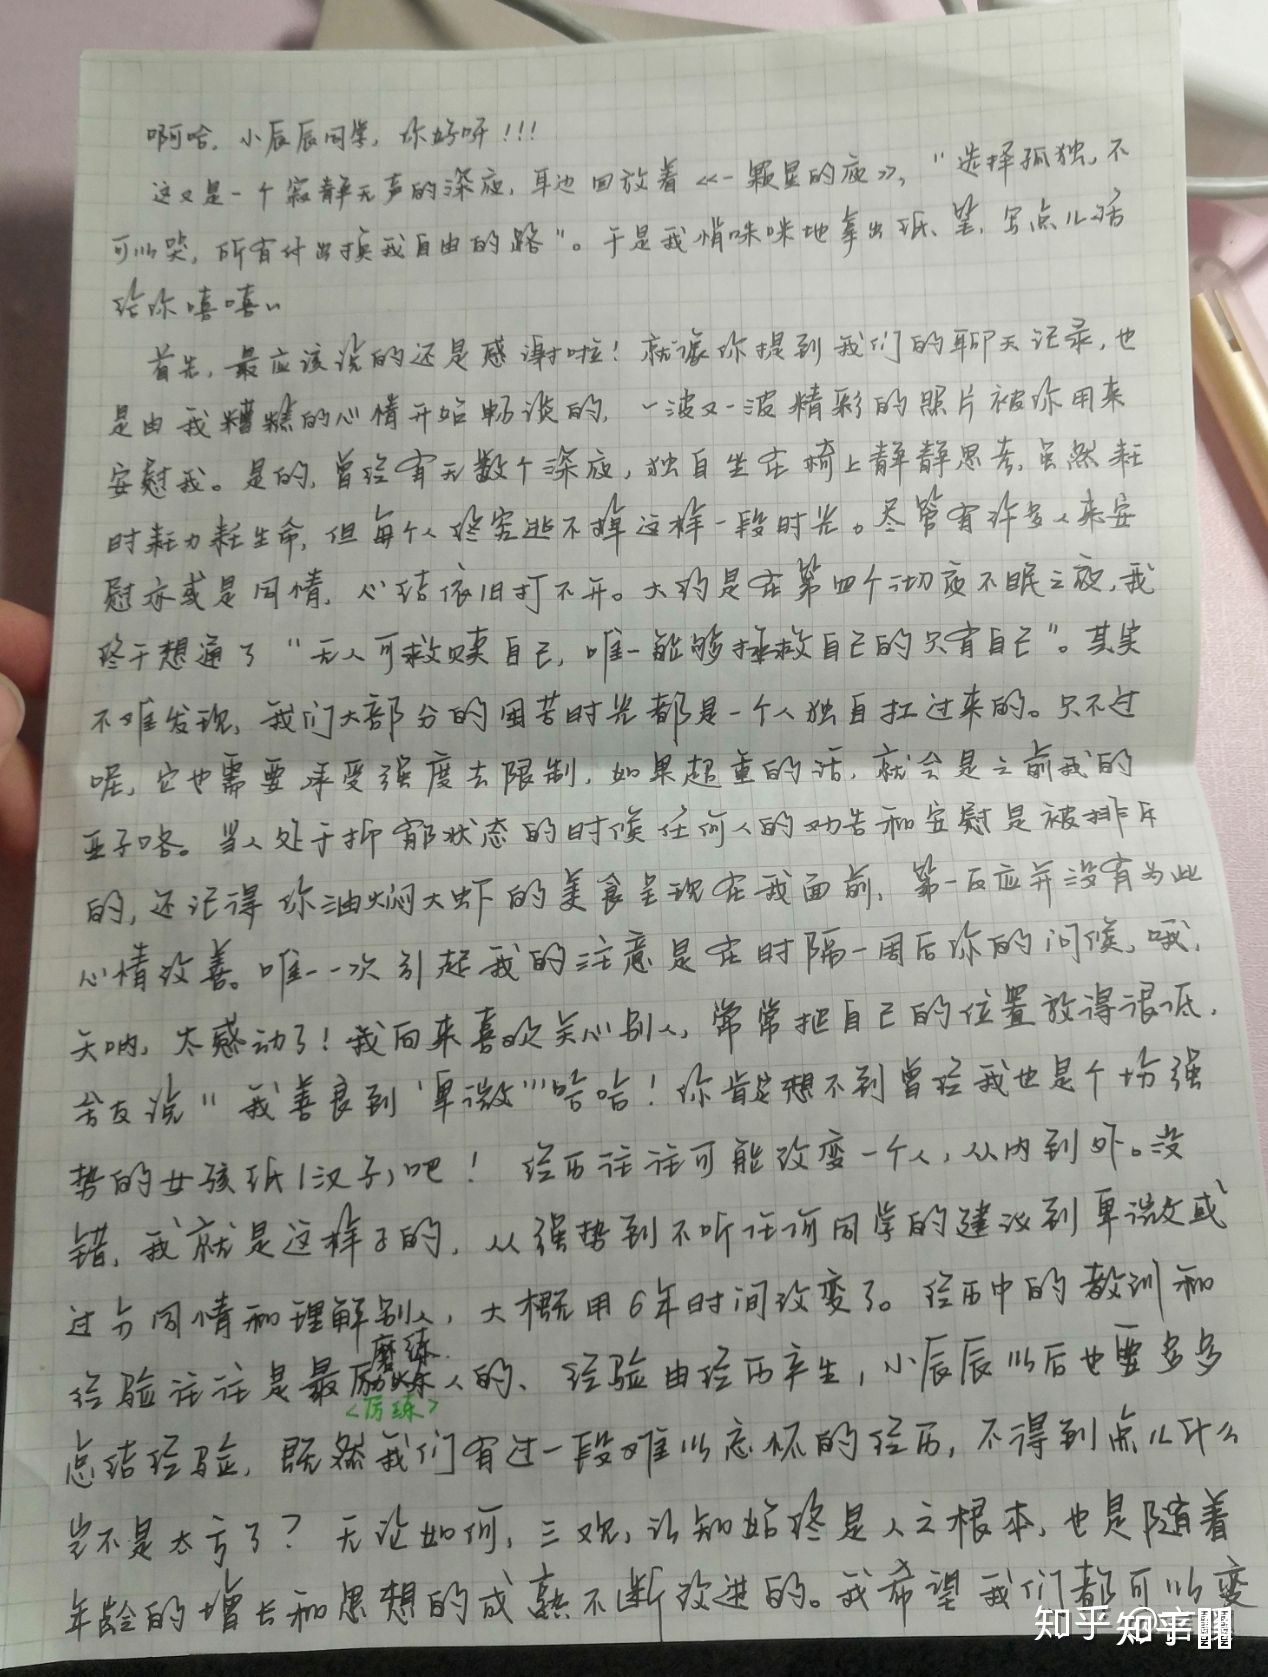 啊哈，小辰辰同学，你好呀！！！
这又是一个寂静无声的深夜，耳边回放着《一颗星的夜》，“选择孤独，不
可以哭，所有付出换我自由的路”。于是我悄咪咪地拿出纸、笔，写点儿话
给你嘻嘻~
首先，最应该说的还是感谢啦！就像你提到我们的聊天记录，也
是由我糟糕的心情开始畅谈的，一波又一波精彩的照片被你用来
安慰我。是的，曾经有无数个深夜，独自坐在椅上静静思考，虽然耗
时耗力耗生命，但每个人终究逃不掉这样一段时光。尽管有许多人来安
慰亦或是同情，心结依旧打不开。大约是在第四个彻夜不眠之夜，我
终于想通了“无人可救赎自己，唯一能够拯救自己的只有自己”。其实
不难发现，我们大部分的困苦时光都是一个人独自扛过来的。只不过
呢，它也需要承受强度去限制，如果超重的话，就会是之前我的
亚子咯。当人处于抑郁状态的时候任何人的劝告和安慰是被排斥
的，还记得你油焖大虾的美食呈现在我面前，第一反应并没有为此
心情改善。唯一一次引起我的注意是在时隔一周后你的问候，哦，
天呐，太感动了！我向来喜欢关心别人，常常把自己的位置放得很低，
舍友说“我善良到‘卑微’”哈哈！你肯定想不到曾经我也是个十分强
势的女孩纸（汉子）吧！经历往往可能改变一个人，从内到外。没
错，我就是这样子的，从强势到不听任何同学的建议到卑微或
过分同情和理解别人，大概用6年时间改变了。经历中的教训和
磨练
经验往往是最人的、经验由经历产生，小辰辰以后也要多多
<历练>
总结经验，既然我们有过一段难以忘怀的经历，不得到点儿什么
岂不是太亏了？无论如何，三观，认知始终是人之根本，也是随着
年龄的增长和思想的成熟不断改进的。我希望我们都可以变
知乎
知乎